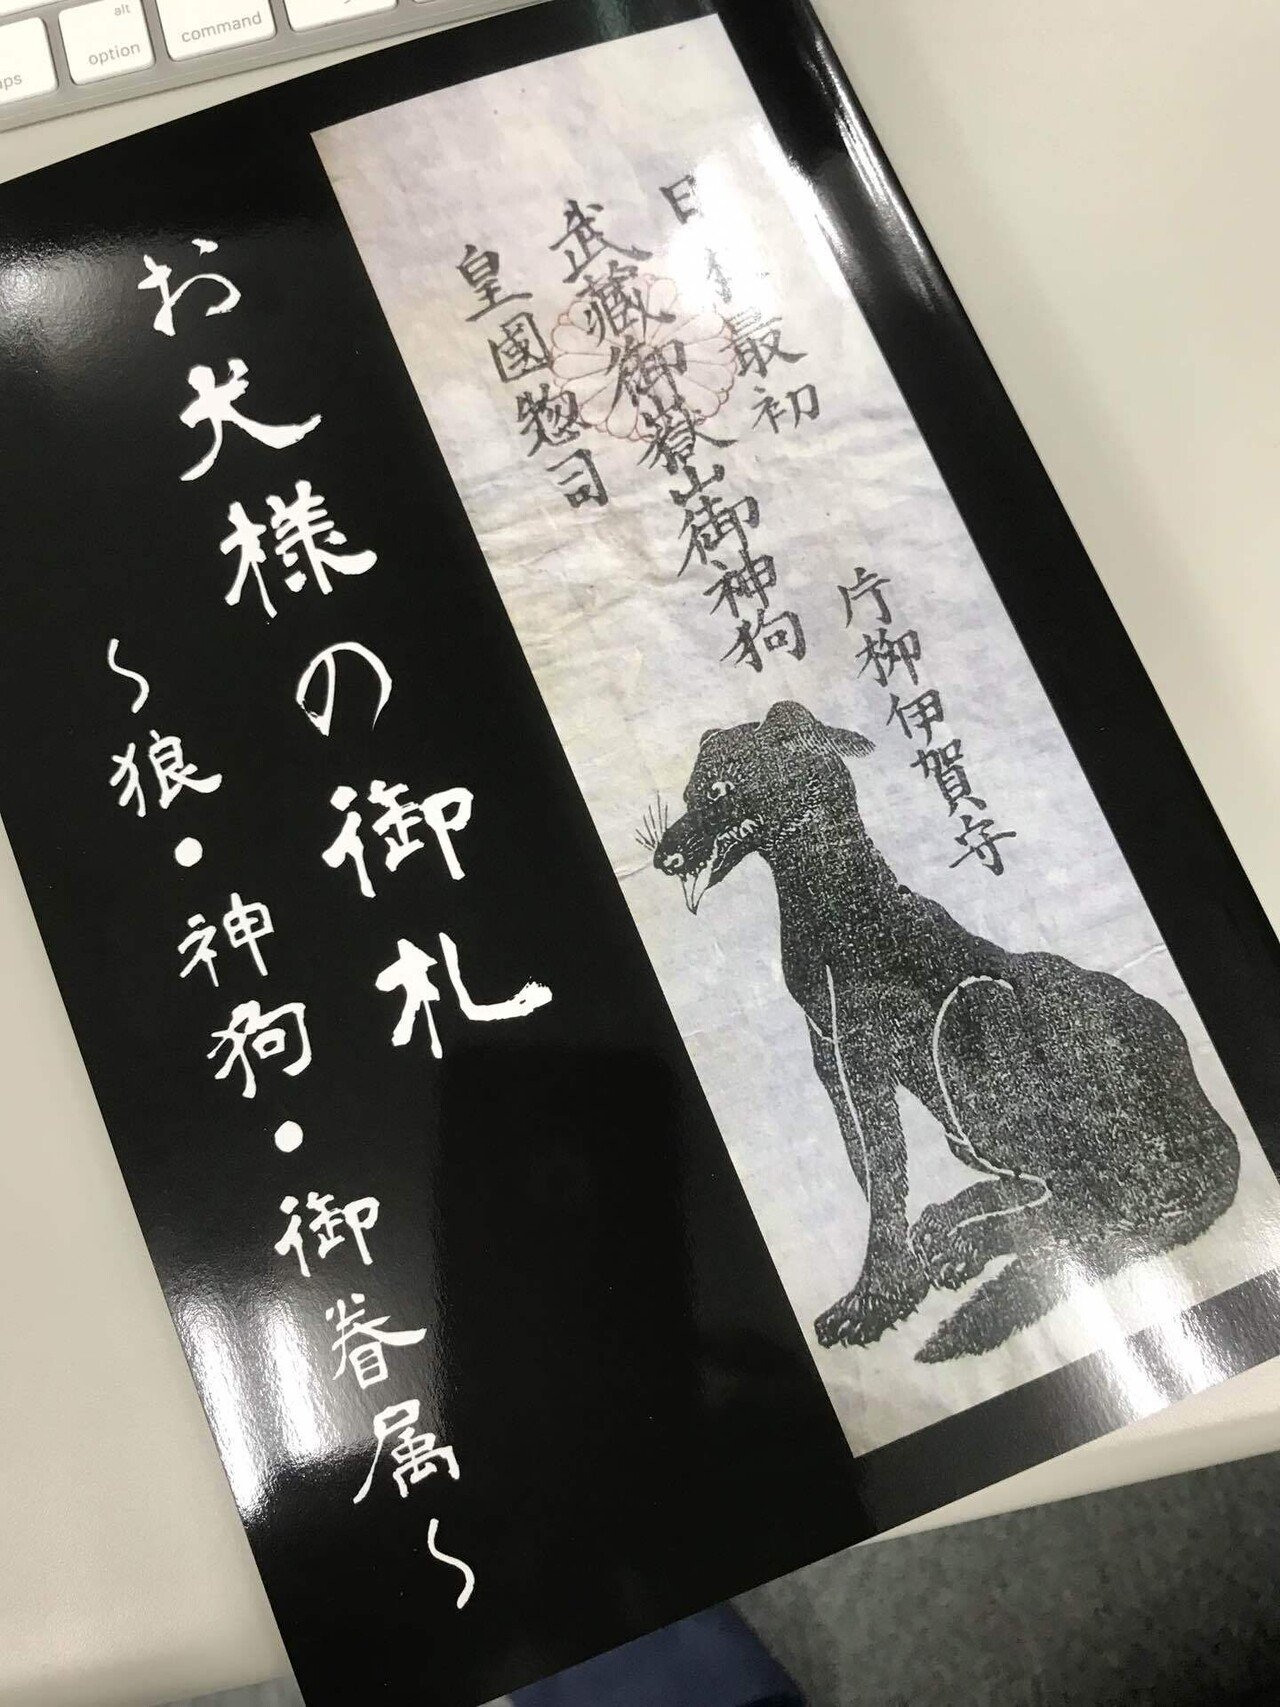 alt
option
command
お犬様の御札
〜狼・神狗・御眷属〜
最初
武藏御嶽山御神狗
皇國惣司
片柳伊賀守